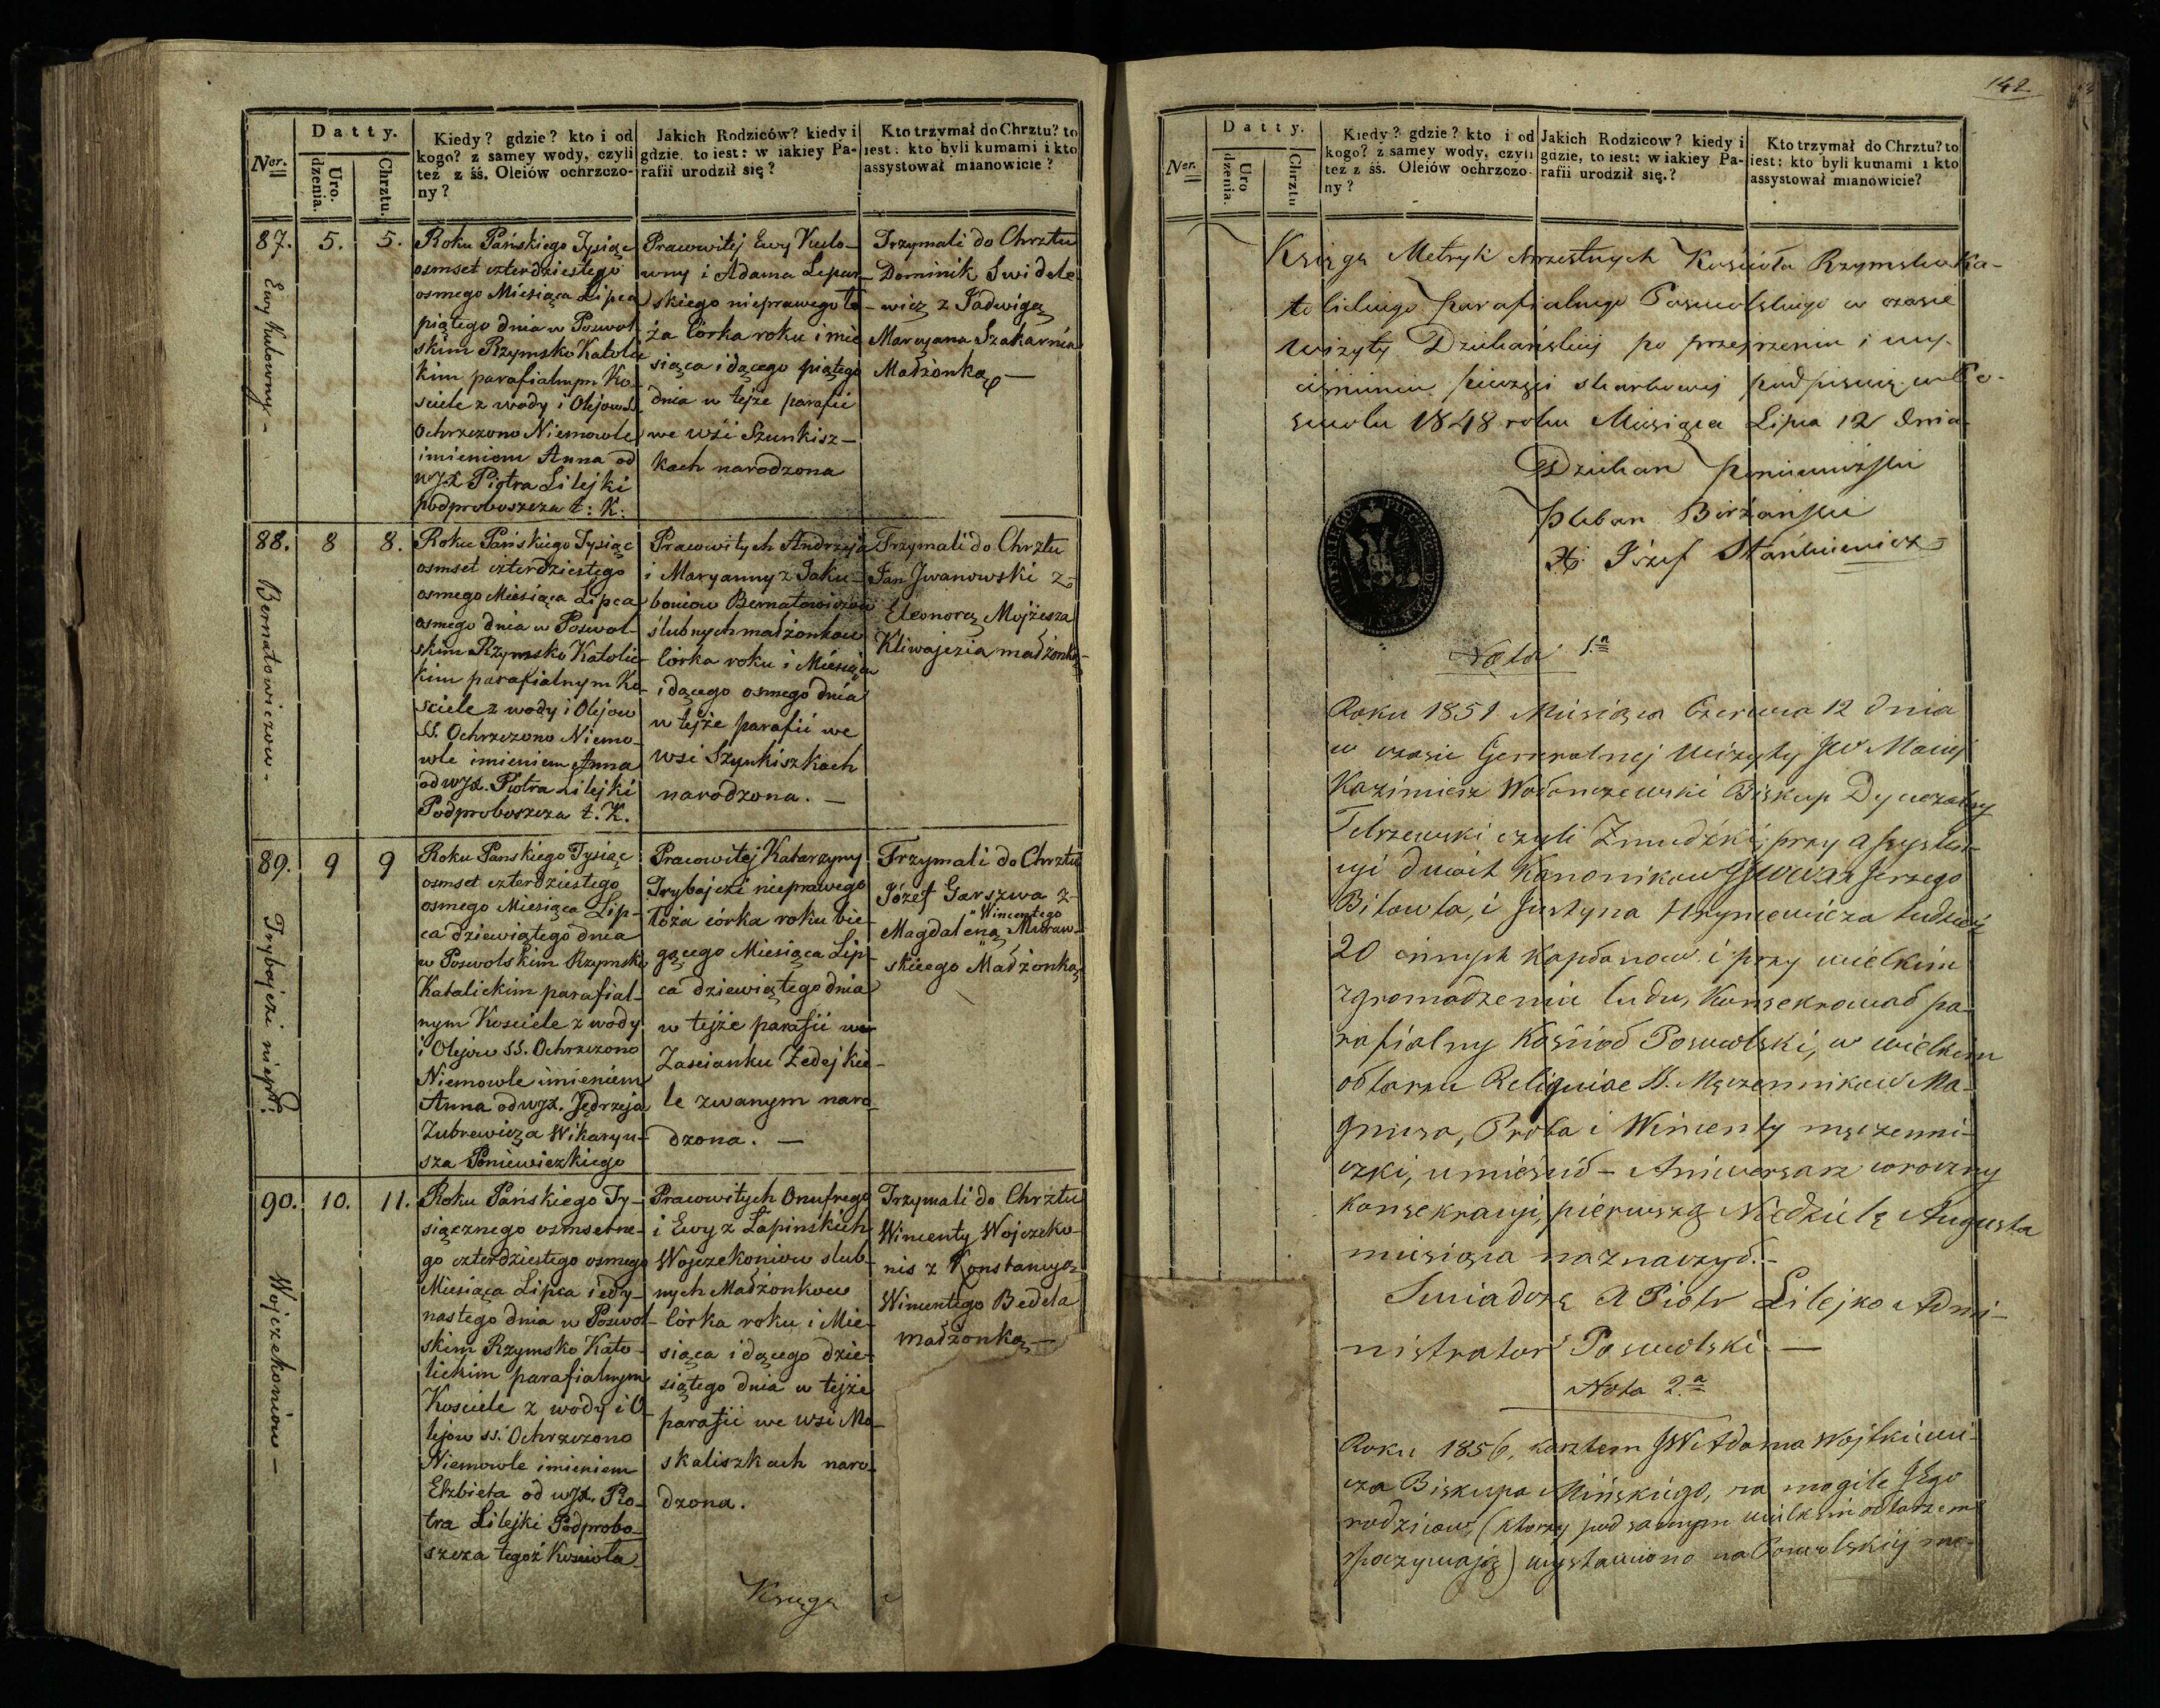 Ner.
Datty.
Uro.
dzenia.
Chrztu.
Kiedy? gdzie? kto i od
kogo? z samey wody, czyli
też z śś. Oleiów ochrzczo-
ny?
Jakich Rodziców? kiedy i
gdzie, to iest: w iakiey Pa-
rafii urodził się?
Kto trzymał do Chrztu? to
iest: kto byli kumami i kto
assystował mianowicie?
87.
Ewy Kulowny -
5.
5.
Roku Pańskiego Tysiąc
osmset czterdziestego
osmego Miesiąca Lipca
piątego dnia w Poswol-
skim Rzymsko Katolic
kim parafialnym Ko-
sciele z wody i Olejow SS.
Ochrzczono Niemowle
imieniem Anna od
wJX Piotra Lilejki
podproboszcza t: K:
Pracowitej Ewy Kulo-
wny i Adama Lepar-
skiego nieprawego ło-
ża Corka roku i mie
siąca idącego piątego
dnia w tejże parafii
we wsi Szunkisz-
kach narodzona
Trzymali do Chrztu
Dominik Swidele
wicz z Jadwigą
Maryana Szakarnia
Małżonką -
88.
Bernatowiczow -
8
8.
Roku Pańskiego Tysiąc
osmset czterdziestego
osmego Miesiąca Lipca
osmego dnia w Poswol-
skim Rzymsko Katolic-
kim parafialnym Ko-
sciele z wody i Olejow
SS. Ochrzczono Niemo-
wle imieniem Anna
od wJX. Piotra Lilejki
Podproboszcza t. K.
Pracowitych Andrzeja
i Maryanny z Jaku-
boniow Bernatowiczow
ślubnych małżonkow
Corka roku i Miesiąca
idącego osmego dnia
w tejże parafii we
wsi Szynkiszkach
narodzona. -
Trzymali do Chrztu
Jan Jwanowski z
Eleonorą Mojżesza
Kliwajezia małżonką -
89.
Trybajczi niepr:
9
9
Roku Panskiego Tysiąc
osmset czterdziestego
osmego Miesiąca Lip-
ca dziewiątego dnia
w Poswolskim Rzymsko
Katolickim parafial-
nym Kosciele z wody
i Olejow SS. Ochrzczono
Niemowle imieniem
Anna od wJX. Jędrzeja
Zubrewicza Wikaryu-
sza Poniewiezkiego
Pracowitej Katarzyny
Trybajczi nieprawego
Łoża córka roku bie-
gącego Miesiąca Lip-
ca dziewiątego dnia
w tejże parafii we
Zascianku Zedejkie-
le zwanym naro-
dzona. -
Trzymali do Chrztu
Józef Garszwa z
Wincentego
Magdaleną Muraw-
skiego Małżonką
90.
Wojczekoniow -
10.
11.
Roku Pańskiego Ty-
siącznego osmsetne-
go czterdziestego osmego
Miesiąca Lipca jedy-
nastego dnia w Poswol-
skim Rzymsko Kato-
lickim parafialnym
Kosciele z wody i O-
lejow SS. Ochrzczono
Niemowle imieniem
Elzbieta od wJX. Pio-
tra Lilejki Podprobo-
szcza tegoż Kosciola
Pracowitych Onufrego
i Ewy z Łapinskich
Wojczekoniow slub-
nych Małżonkow
Corka roku i Mie-
siąca idącego dzie-
siątego dnia w tejże
parafii we wsi Mo-
skaliszkach naro-
dzona.
Trzymali do Chrztu
Wincenty Wojczeko-
nis z Konstancyą
Wincentego Bedela
małżonką -
Księga
142.
Ner.
Datty.
Uro
dzenia.
Chrztu
Kiedy? gdzie? kto i od
kogo? z samey wody, czyli
też z śś. Oleiów ochrzczo-
ny?
Jakich Rodziców? kiedy i
gdzie, to iest: w iakiey Pa-
rafii urodził się.?
Kto trzymał do Chrztu? to
iest: kto byli kumami i kto
assystował mianowicie?
Księga Metryk Chrzestnych Kościoła Rzymsko Ka-
tolickiego parafialnego Poswolskiego w czasie
wizyty Dziekańskiej po przejrzeniu i wy-
ciśnieniu pieczęci skarbowej podpisuię w Po-
swolu 1848 roku Miesiąca Lipca 12 dnia
Dziekan Poniewiezski
Pleban Birżański
X. Józef Stańkiewicz
Nota 1.a
Roku 1851 Miesiąca Czerwca 12 dnia
w czasie Generalnej Wizyty JW Maciej
Kazimierz Wołonczewski Biskup Dyecezalny
Telszewski czyli Zmudzki, przy assysten-
cyi dwóch Kanonikow Jerzego
Bitowta, i Justyna Hryncewicza tudzież
20 innych Kapłanow i przy wielkim
zgromadzeniu ludu, Konsekrował pa-
rafialny Kościoł Poswolski, w wielkim
ołtarzu Reliquiae SS. Męczennikow Ma-
gnusa, Proba i Wincenty męczenni-
czki, umieścił - Aniwersarz coroczny
Konsekracyi, pierwszą Niedzielę Augusta
miesiąca naznaczył. -
Swiadczę X Piotr Lilejko Admi-
nistrator Poswolski. -
Nota 2.a
Roku 1856, kosztem JW Adama Wojtkiewi-
cza Biskupa Mińskiego, na mogile Jego
rodzicow, (ktorzy pod samym wielkim ołtarzem
spoczywają) wystawiono na Poswolskiej